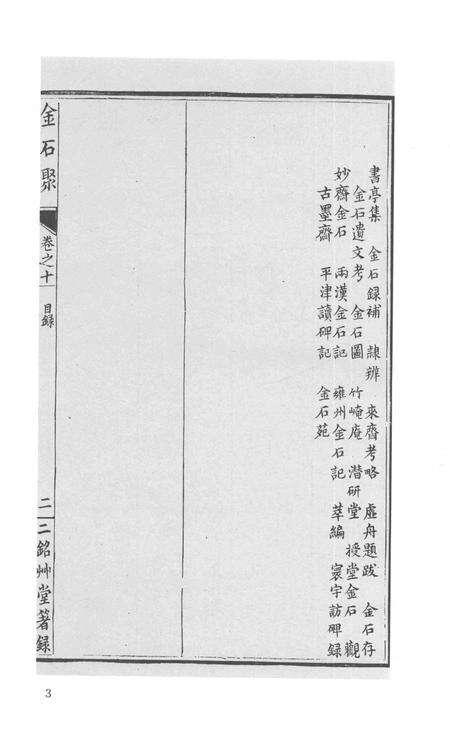 書亭集 金石録補 隸辨 來齋考略 虛舟題跋 金石存
金石遺文考 金石圖 竹崦庵 潛研堂 授堂金石 觀
妙齋金石 兩漢金石記 雍州金石記 萃編 寰宇訪碑録
古墨齋 平津讀碑記 金石苑
金石聚 卷之十 目録 二 二銘艸堂著録
3